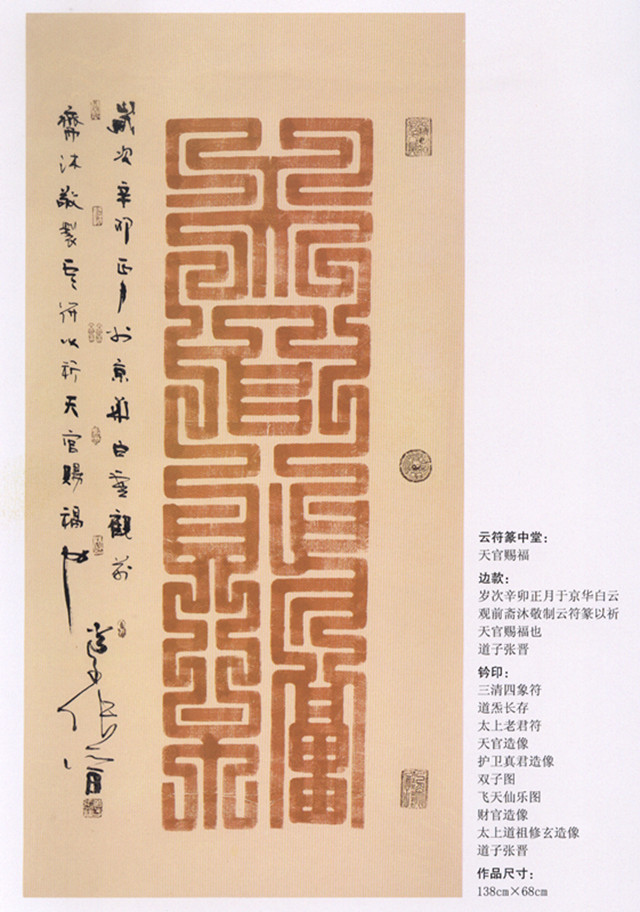 天官賜福
歲次辛卯正月於京華白雲觀前
齋沐敬製云符以祈天官賜福也
道子張晉
云符篆中堂：
天官赐福
边款：
岁次辛卯正月于京华白云
观前斋沐敬制云符篆以祈
天官赐福也
道子张晋
钤印：
三清四象符
道炁长存
太上老君符
天官造像
护卫真君造像
双子图
飞天仙乐图
财官造像
太上道祖修玄造像
道子张晋
作品尺寸：
138cm×68cm